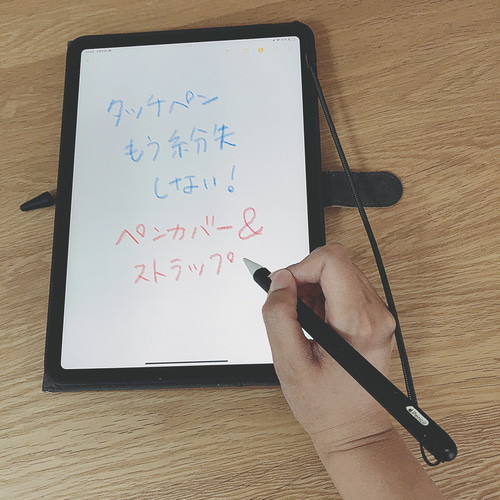 タッチペン
もう紛失
しない!
ペンカバー&
ストラップ